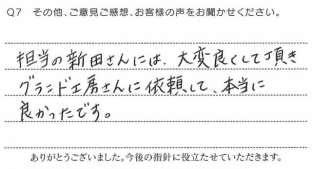 Q7 その他、ご意見ご感想、お客様の声をお聞かせください。
担当の新田さんには、大変良くして頂き
グランド工房さんに依頼して、本当に
良かったです。
ありがとうございました。今後の指針に役立たせていただきます。